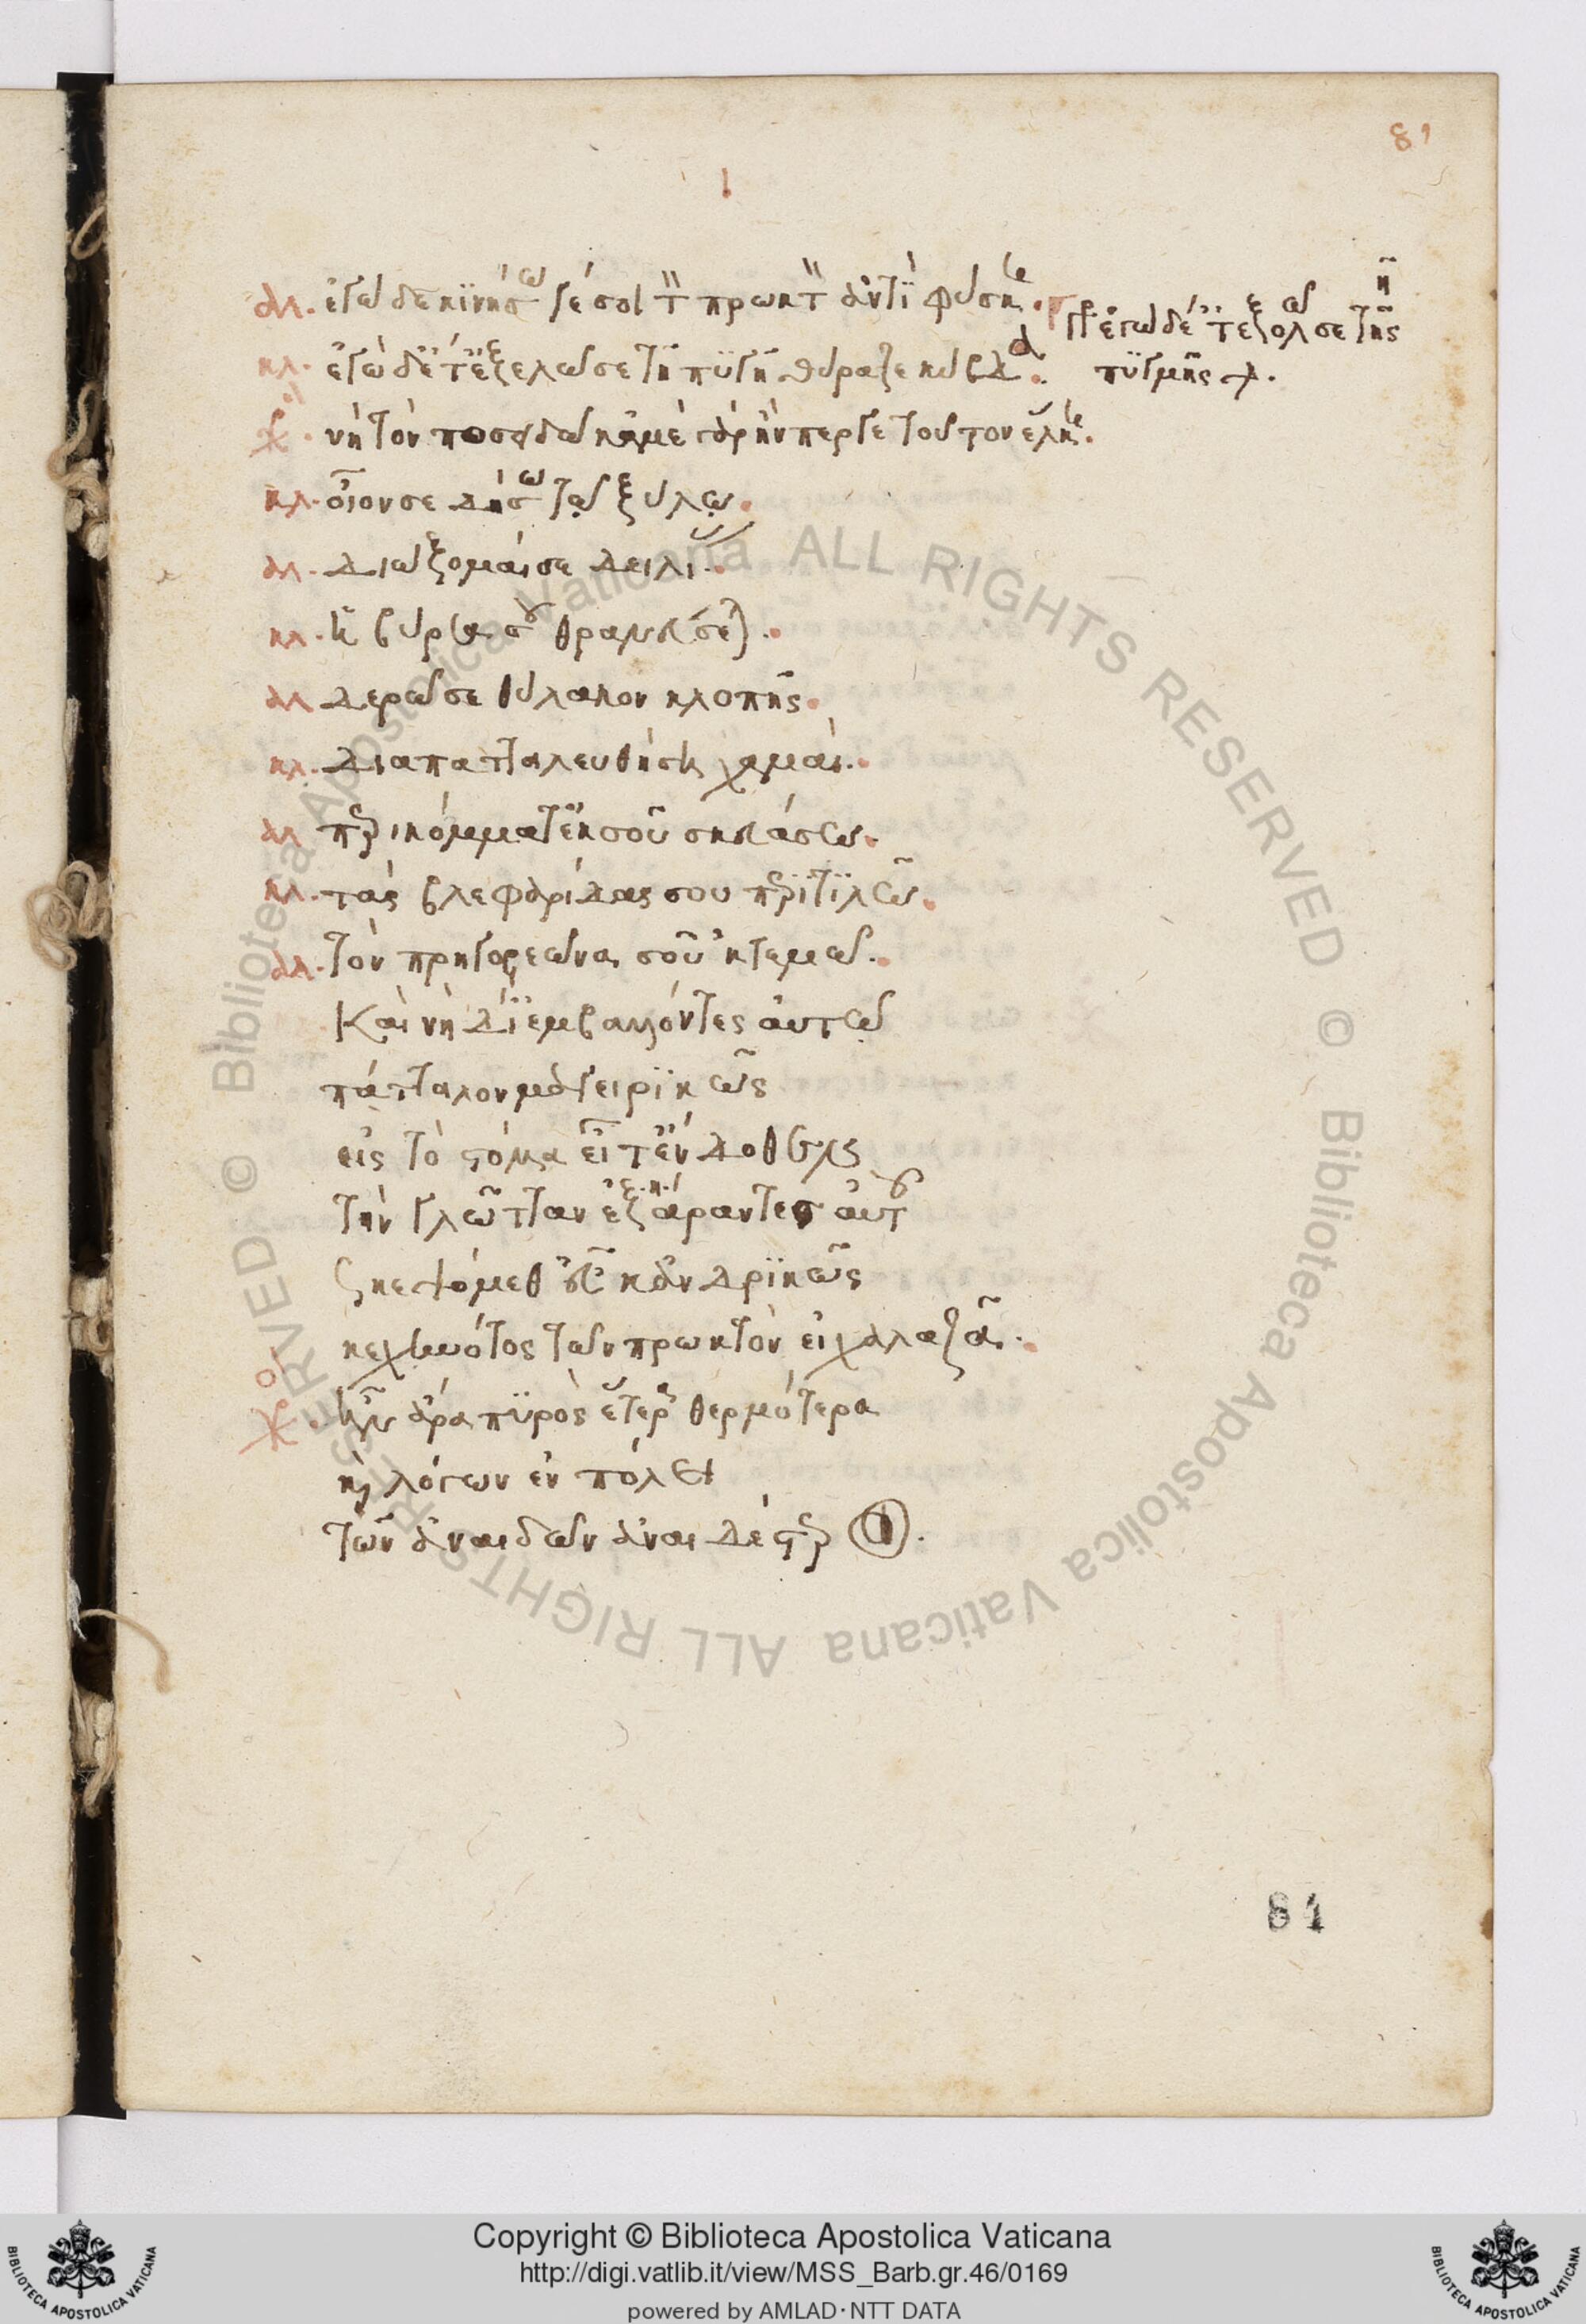 81
ἀλ. ἐγὼ δὲ κϊνήσω γέ σοῦ τὸν πρωκτὸν ἀντὶ φύσκης.
γρ ἐγὼ δέ γ' ἐξολῶ σε τῆς
κλ. ἐγὼ δέ γ' ἐξελῶ σε τῆς πϋγῆς θύραζε κύβδα.
πϋγμῆς
χο. νὴ τὸν ποσειδῶ κἀμὲ τἄρ' ἤνπερ γε τοῦτον ἕλκης.
κλ. οἷόν σε δήσω τῷ ξύλῳ.
ἀλ. διώξομαί σε δειλίας.
κλ. ἡ βύρσα σου θρανεύσεται.
ἀλ. δερῶ σε θύλακον κλοπῆς.
κλ. διαπατταλευθήση χαμαί.
ἀλ. περικόμματ' ἔκ σοῦ σκευάσω.
κλ. τὰς βλεφαρίδας σου περϊτϊλῶ.
ἀλ. τὸν πρηγορεῶνα σοῦ 'κτεμῶ.
Καὶ νὴ Δί' ἐμβαλόντες αὐτῷ
πάτταλον μαγειρϊκῶς
εἰς τὸ στόμα εἶτα δ' ἔνδοθεν
τὴν γλῶτταν ἐξάραντες αὐτοῦ
σκεψόμεθ' εὖ κἀνδρϊκῶς
κεχηνότος τῶν πρωκτὸν εἰ χαλαζᾷ.
χο. ἦν ἄρα πϋρὸς ἕτερα θερμότερα
καὶ λόγων ἐν πόλει
τῶν ἀναιδῶν ἀναιδέστεροι
84
Copyright © Biblioteca Apostolica Vaticana
http://digi.vatlib.it/view/MSS_Barb.gr.46/0169
powered by AMLAD·NTT DATA
BIBLIOTECA APOSTOLICA VATICANA
BIBLIOTECA APOSTOLICA VATICANA
© Biblioteca Apostolica Vaticana ALL RIGHTS RESERVED © Biblioteca Apostolica Vaticana ALL RIGHTS RESERVED